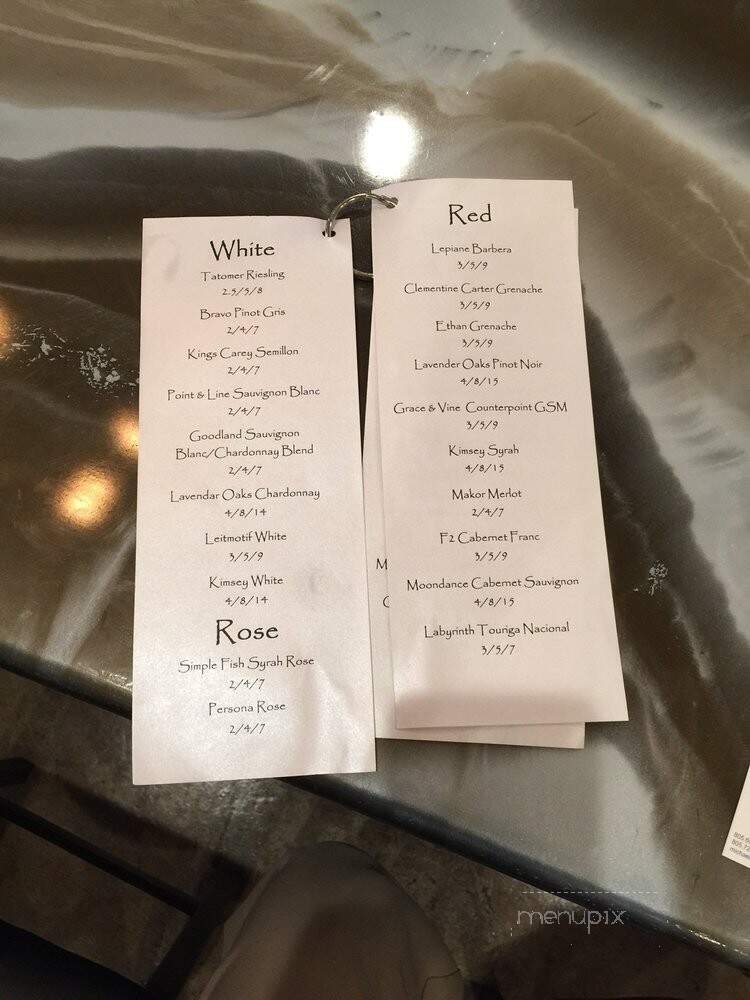 White
Tatomer Riesling
2.5/5/8
Bravo Pinot Gris
2/4/7
Kings Carey Semillon
2/4/7
Point & Line Sauvignon Blanc
2/4/7
Goodland Sauvignon
Blanc/Chardonnay Blend
2/4/7
Lavendar Oaks Chardonnay
4/8/14
Leitmotif White
3/5/9
Kimsey White
4/8/14
Rose
Simple Fish Syrah Rose
2/4/7
Persona Rose
2/4/7
Red
Lepiane Barbera
3/5/9
Clementine Carter Grenache
3/5/9
Ethan Grenache
3/5/9
Lavender Oaks Pinot Noir
4/8/15
Grace & Vine Counterpoint GSM
3/5/9
Kimsey Syrah
4/8/15
Makor Merlot
2/4/7
F2 Cabernet Franc
3/5/9
Moondance Cabernet Sauvignon
4/8/15
Labyrinth Touriga Nacional
3/5/7
M
C
menupix